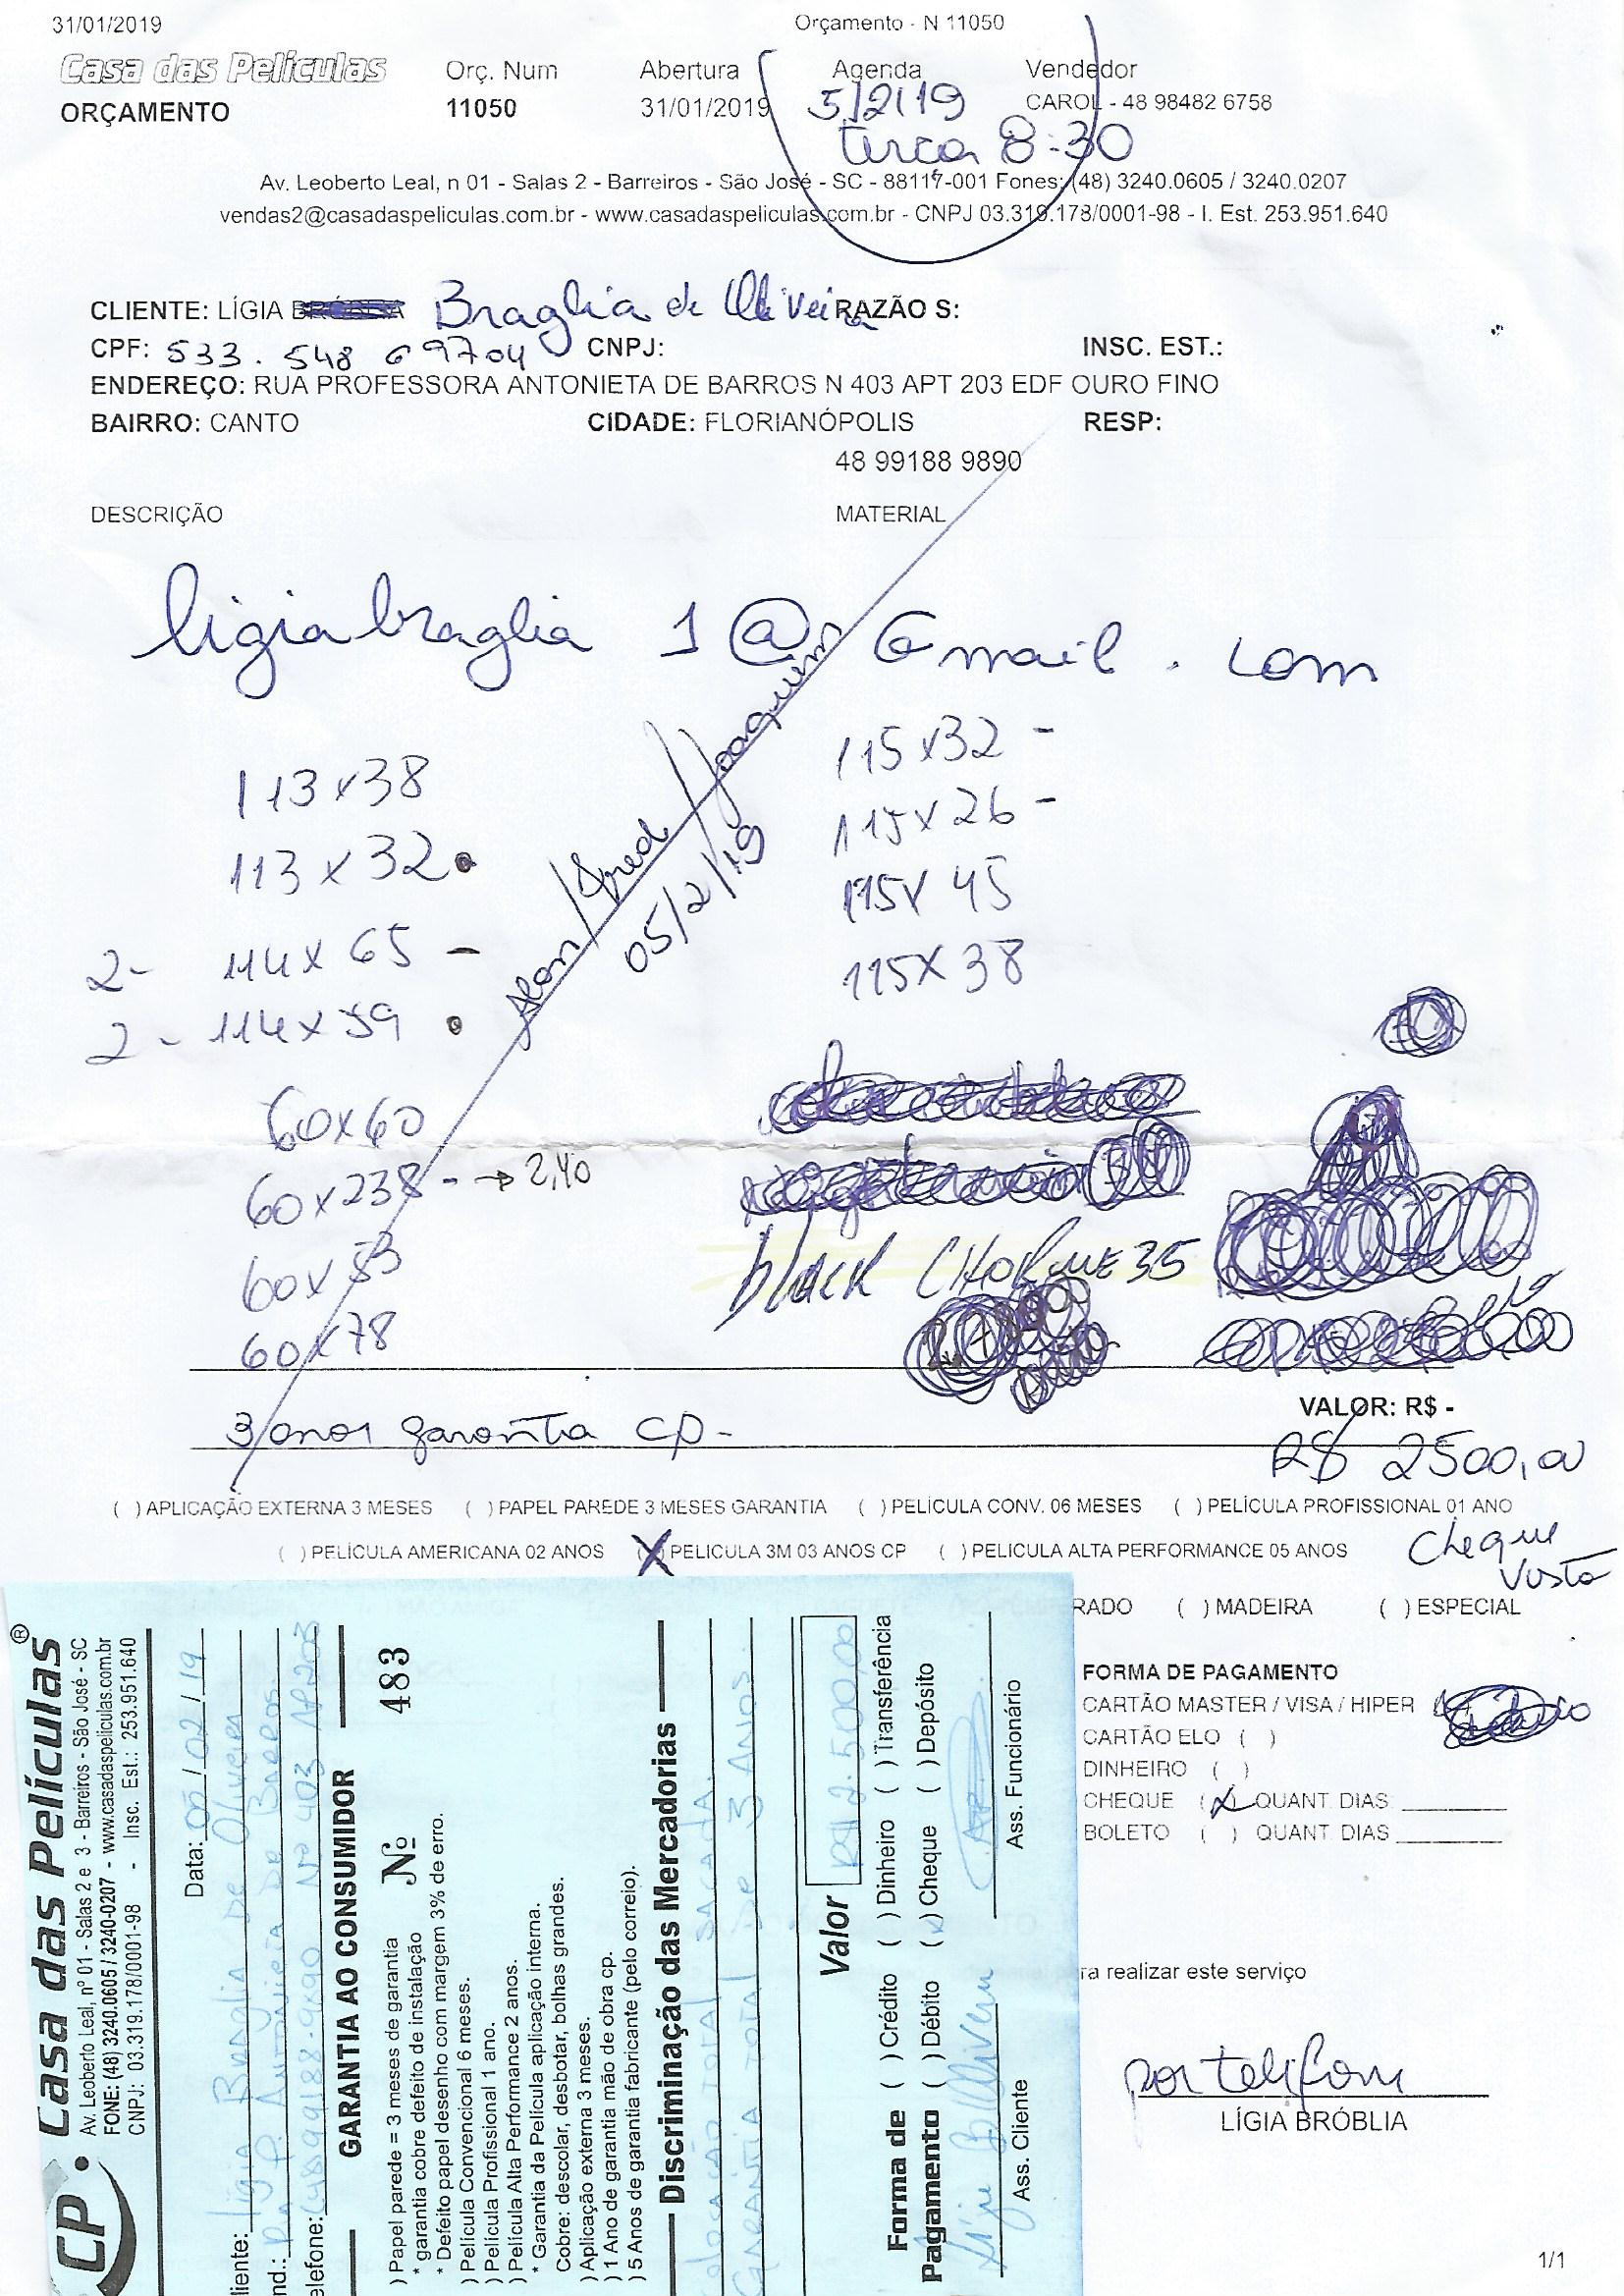 31/01/2019
Orçamento - N 11050
Casa das Películas
Orç. Num Abertura Agenda Vendedor
ORÇAMENTO 11050 31/01/2019 5/2/19 CAROL - 48 98482 6758
terça 8:30
Av. Leoberto Leal, n 01 - Salas 2 - Barreiros - São José - SC - 88117-001 Fones: (48) 3240.0605 / 3240.0207
vendas2@casadaspeliculas.com.br - www.casadaspeliculas.com.br - CNPJ 03.319.178/0001-98 - I. Est. 253.951.640
CLIENTE: LÍGIA Braglia de Oliveira RAZÃO S:
CPF: 533.548 69704 CNPJ: INSC. EST.:
ENDEREÇO: RUA PROFESSORA ANTONIETA DE BARROS N 403 APT 203 EDF OURO FINO
BAIRRO: CANTO CIDADE: FLORIANÓPOLIS RESP:
48 99188 9890
DESCRIÇÃO MATERIAL
ligiabraglia 1@Gmail.com
113x38
113x32
2- 114x65 -
2- 114x59
60x60
60x238 - → 2,40
60x53
60x78
/Joaquim
05/2/19
115x32 -
115x26 -
115x45
115x38
black CHORME 35
VALOR: R$ -
3 anos garantia CP-
R$ 2500,00
( ) APLICAÇÃO EXTERNA 3 MESES ( ) PAPEL PAREDE 3 MESES GARANTIA ( ) PELÍCULA CONV. 06 MESES ( ) PELÍCULA PROFISSIONAL 01 ANO
( ) PELÍCULA AMERICANA 02 ANOS (X) PELICULA 3M 03 ANOS CP ( ) PELICULA ALTA PERFORMANCE 05 ANOS
Cheque
Vista
RADO ( ) MADEIRA ( ) ESPECIAL
FORMA DE PAGAMENTO
CARTÃO MASTER / VISA / HIPER
CARTÃO ELO ( )
DINHEIRO ( )
CHEQUE (X) QUANT. DIAS
BOLETO ( ) QUANT. DIAS
ra realizar este serviço
por telifone
LÍGIA BRÓBLIA
1/1
CP. Casa das Películas®
Av. Leoberto Leal, nº 01 - Salas 2 e 3 - Barreiros - São José - SC
FONE: (48) 3240.0605 / 3240-0207 - www.casadaspeliculas.com.br
CNPJ: 03.319.178/0001-98 - Insc. Est.: 253.951.640
Data: 05/02/19
liente: Ligia Braglia de Oliveira
nd.: Antonieta de Barros
elefone: (48) 99188-9890 Nº 403 AP 203
GARANTIA AO CONSUMIDOR Nº 483
) Papel parede = 3 meses de garantia
* garantia cobre defeito de instalação
* Defeito papel desenho com margem 3% de erro.
) Película Convencional 6 meses.
) Película Profissional 1 ano.
) Película Alta Performance 2 anos.
* Garantia da Película aplicação interna.
Cobre: descolar, desbotar, bolhas grandes.
) Aplicação externa 3 meses.
) 1 Ano de garantia mão de obra cp.
) 5 Anos de garantia fabricante (pelo correio).
Discriminação das Mercadorias
total sacada.
Garantia total de 3 Anos
Valor R$ 2.500,00
Forma de Pagamento
( ) Crédito ( ) Dinheiro ( ) Transferência
( ) Débito (x) Cheque ( ) Depósito
Ass. Cliente Ass. Funcionário